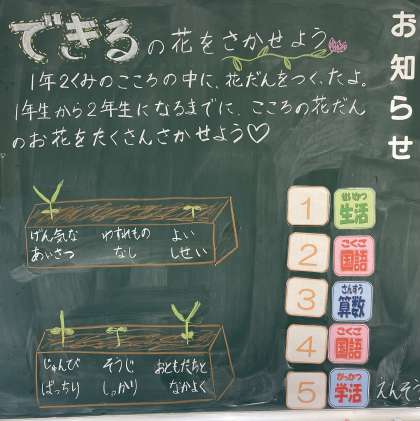 できるの花をさかせよう
1年2くみのこころの中に、花だんをつくったよ。
1年生から2年生になるまでに、こころの花だん
のお花をたくさんさかせよう♡
お知らせ
げん気な
あいさつ
わすれもの
なし
よい
しせい
じゅんび
ばっちり
そうじ
しっかり
おともだちと
なかよく
1 せいかつ
生活
2 こくご
国語
3 さんすう
算数
4 こくご
国語
5 がっかつ
学活
えんそ